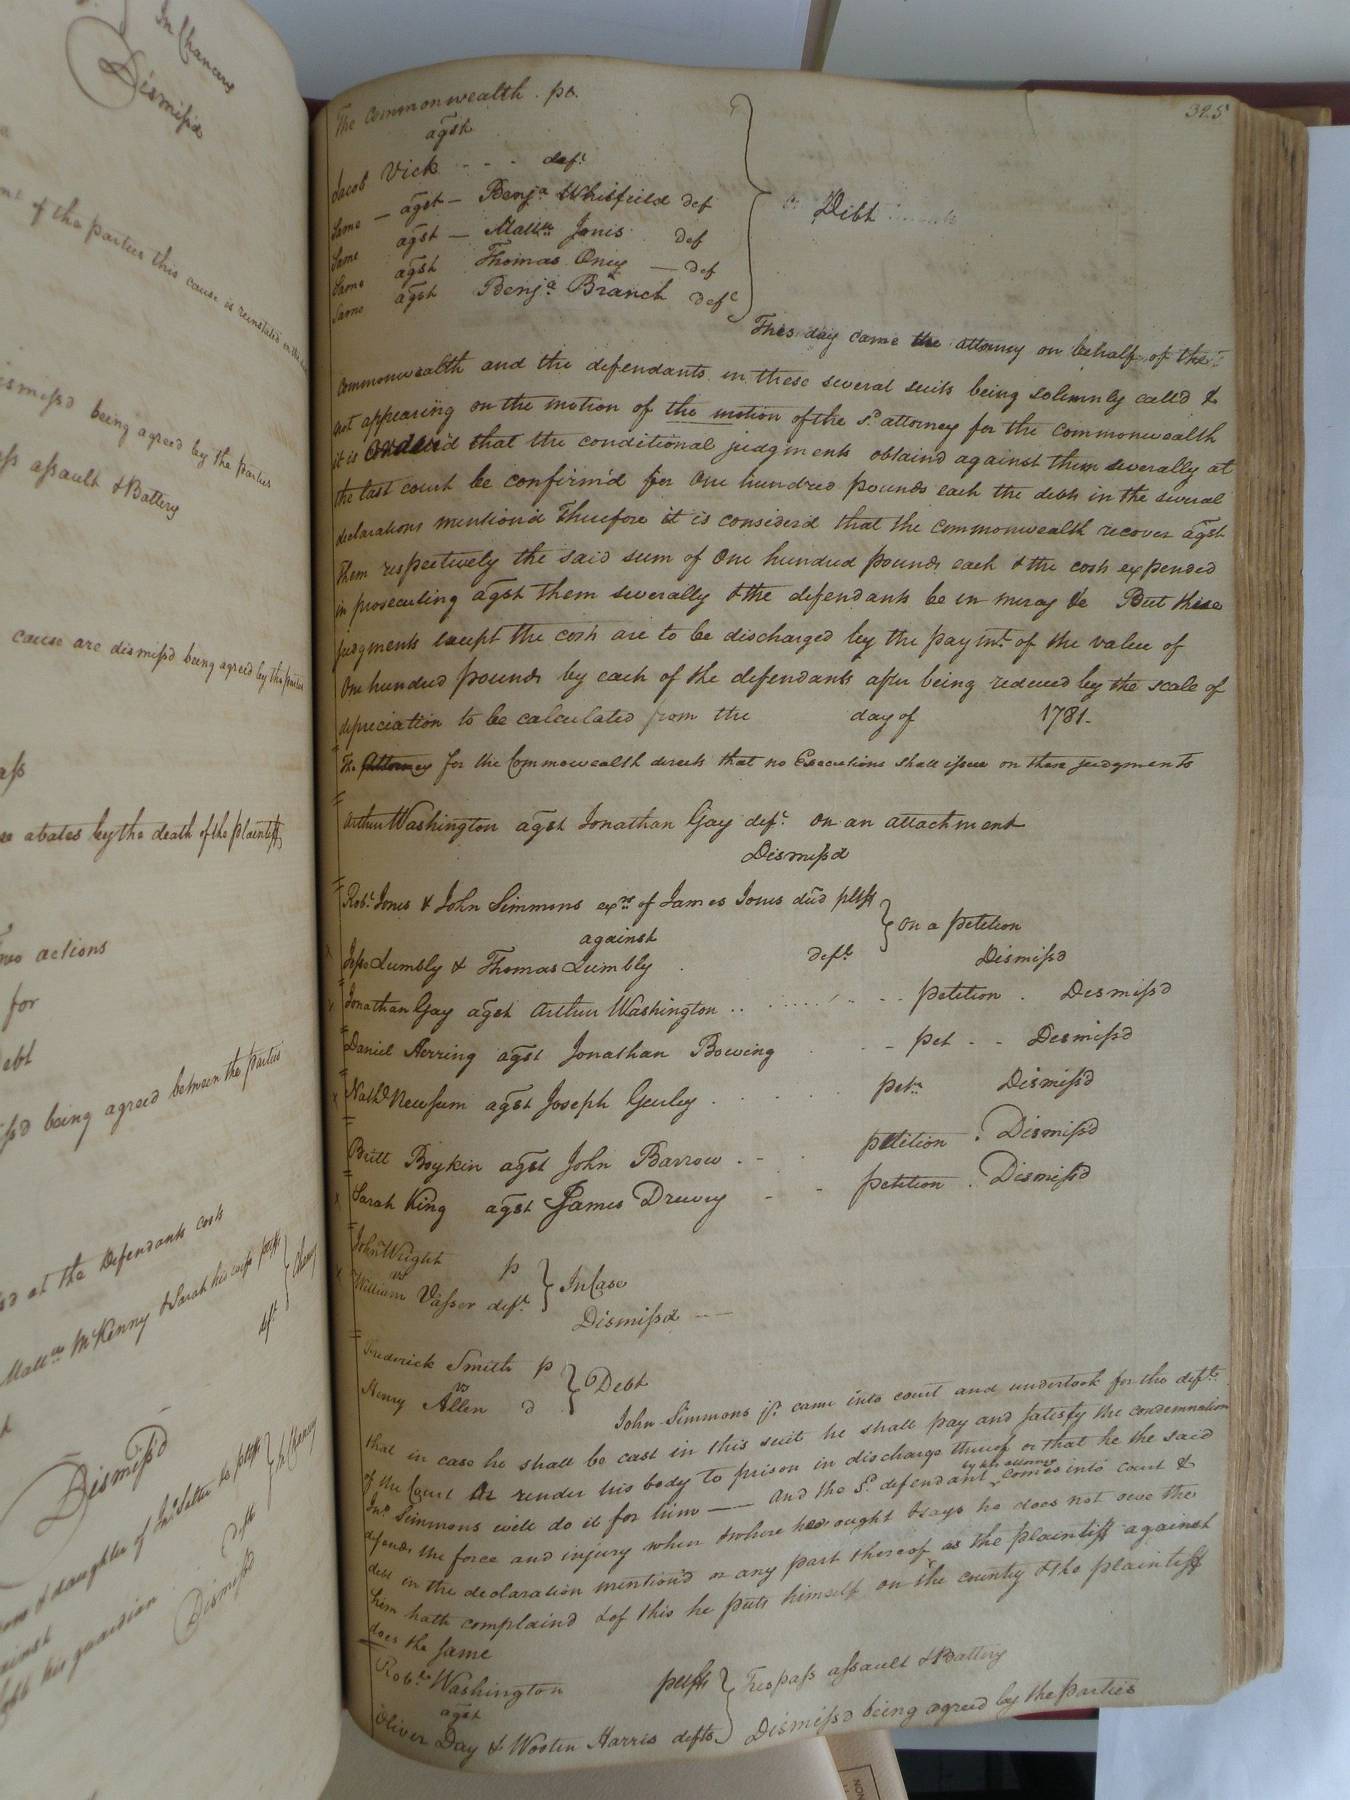 In Chancery
Dismiss'd
of the parties this cause is reinstated on the
dismiss'd being agreed by the parties
assault & Battery
cause are dismiss'd being agreed by the parties
abates by the death of the plaintiff
Two actions
for
Debt
being agreed between the parties
at the Defendants costs
Matt.w McKenny & Sarah his wife pltffs
deft
Chancy
Dismiss'd
& daughter of Jn.o to pltff
In Chancy
against
defts
his guardian
Dismiss'd
325
The Commonwealth . pt.
agst
Jacob Vick - - - deft
Same — agst — Benja Whitfield def
Same agst — Matt.w Jones def
Same agst Thomas Oney — def
Same agst Benja Branch deft
Debt
This day came the attorney on behalf of the
commonwealth and the defendants in these several suits being solemnly called &
not appearing on the motion of the motion of the sd attorney for the commonwealth
it is Ordered that the conditional judgments obtaind against them severally at
the last court be confirm'd for One hundred pounds each the debts in the several
declarations mention'd Therefore it is consider'd that the commonwealth recover agst
them respectively the said sum of One hundred pounds each & the costs expended
in prosecuting agst them severally & the defendants be in mercy &c But these
judgments except the costs are to be discharged by the paymt of the value of
One hundred pounds by each of the defendants after being reduced by the scale of
depreciation to be calculated from the day of 1781.
The Attorney for the Commowealth directs that no Executions shall issue on these judgments
Arthur Washington agst Jonathan Gay deft on an attachment
Dismiss'd
Robt Jones & John Simmons exrs of James Jones dec'd pltffs
against
Jesse Lumbly & Thomas Lumbly . defts
on a petition
Dismiss'd
Jonathan Gay agst Arthur Washington .. petition . Dismiss'd
Daniel Herring agst Jonathan Bowing - pet - - Dismiss'd
Nathl Newsum agst Joseph Gurley . petn Dismiss'd
Britt Boykin agst John Barrow . - . petition . Dismiss'd
Sarah King agst James Drewry - - petition . Dismiss'd
John Wright p
vs
William Vasser deft.
In Case
Dismiss'd - —
Frederick Smith p
vs
Henry Allen d
Debt
John Simmons jr. came into court and undertook for the deft
that in case he shall be cast in this suit he shall pay and satisfy the condemnation
of the Court Or render his body to prison in discharge thereof or that he the said
Jno. Simmons will do it for him —— and the sd defendant by his attorney comes into court &
defends the force and injury when & where he ought & says he does not owe the
debt in the declaration mention'd or any part thereof as the plaintiff against
him hath complaind & of this he puts himself on the country & the plaintiff
does the same
Robt Washington pltff
agst
Oliver Day & Wooten Harris defts
Trespass assault & Battery
Dismiss'd being agreed by the parties